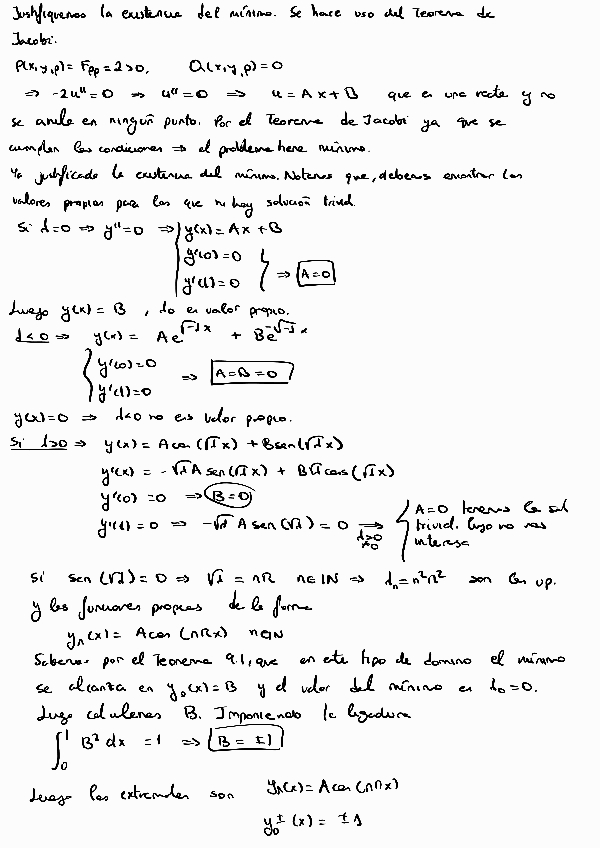 Justifiquemos la existencia del mínimo. Se hace uso del Teorema de
Jacobi.
P(x,y,p)= Fpp=2>0, Q(x,y,p)=0
⇒ -2u''=0 ⇒ u''=0 ⇒ u=Ax+B que es una recta y no
se anula en ningún punto. Por el Teorema de Jacobi ya que se
cumplen las condiciones ⇒ el problema tiene mínimo.
Ya justificado la existencia del mínimo. Notemos que, debemos encontrar los
valores propios para los que hay solución trivial.
Si λ=0 ⇒ y''=0 ⇒ y(x)=Ax+B
y'(0)=0
y'(1)=0 ⇒ A=0
Luego y(x)=B, λ0 es valor propio.
λ<0 ⇒ y(x)= Ae^{√-λ x} + Be^{-√-λ x}
y'(0)=0
y'(1)=0 ⇒ A=B=0
y(x)=0 ⇒ λ<0 no es valor propio.
Si λ>0 ⇒ y(x)= A cos(√λ x) + B sen(√λ x)
y'(x)= -√λ A sen(√λ x) + B√λ cos(√λ x)
y'(0)=0 ⇒ B=0
y'(1)=0 ⇒ -√λ A sen(√λ)=0 ⇒ λ>0 A=0 tenemos la sol
trivial. luego no nos
interesa
Si sen(√λ)=0 ⇒ √λ=nπ n∈ℕ ⇒ λn=n²π² son los vp.
y las funciones propias de la forma
yn(x)= A cos(nπx) n∈ℕ
Sabemos por el Teorema 9.1, que en este tipo de dominio el mínimo
se alcanza en y0(x)=B y el valor del mínimo es λ0=0.
Luego calculemos B. Imponiendo la ligadura
∫₀¹ B² dx =1 ⇒ B=±1
Luego las extremales son yn(x)= A cos(nπx)
y0^±(x)= ±1